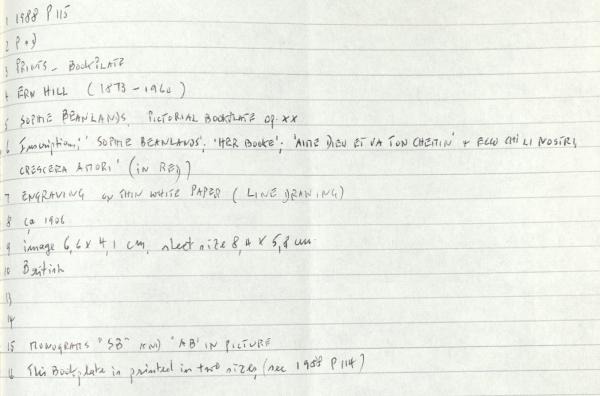 1 1988 P 115
2 P+D
3 PRINTS - BOOKPLATE
4 ERN HILL (1873-1960)
5 SOPHIE BEANLANDS. PICTORIAL BOOKPLATE op. XX
6 Inscription; 'SOPHIE BEANLANDS'; 'HER BOOKE'; 'AIME DIEU ET VA TON CHEMIN' + ECCO CHI LI NOSTRI,
CRESCERA AMORI' (IN RED)
7 ENGRAVING ON THIN WHITE PAPER (LINE DRAWING)
8 ca 1906
9 image 6,6 x 4,1 cm, sheet size 8,4 x 5,8 cm
10 British
13
14
15 MONOGRAMS "SB" AND 'AB' IN PICTURE
16 This Bookplate is printed in two sizes, (see 1988 P 114)